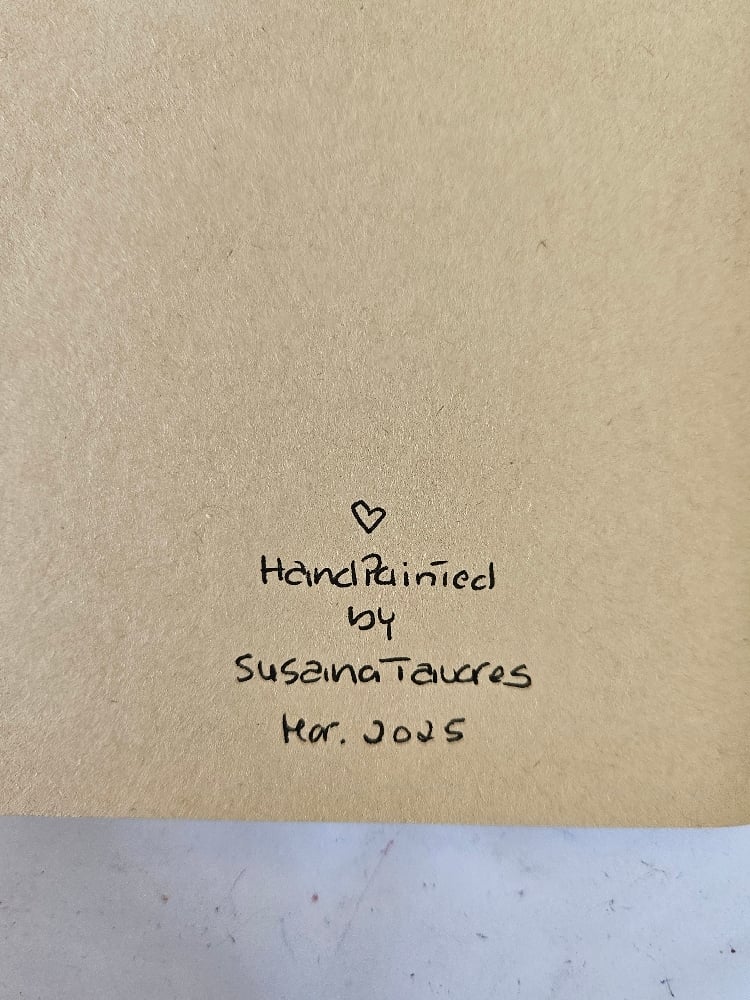 ♡
HandPainted
by
Susana Tavares
Mar. 2025